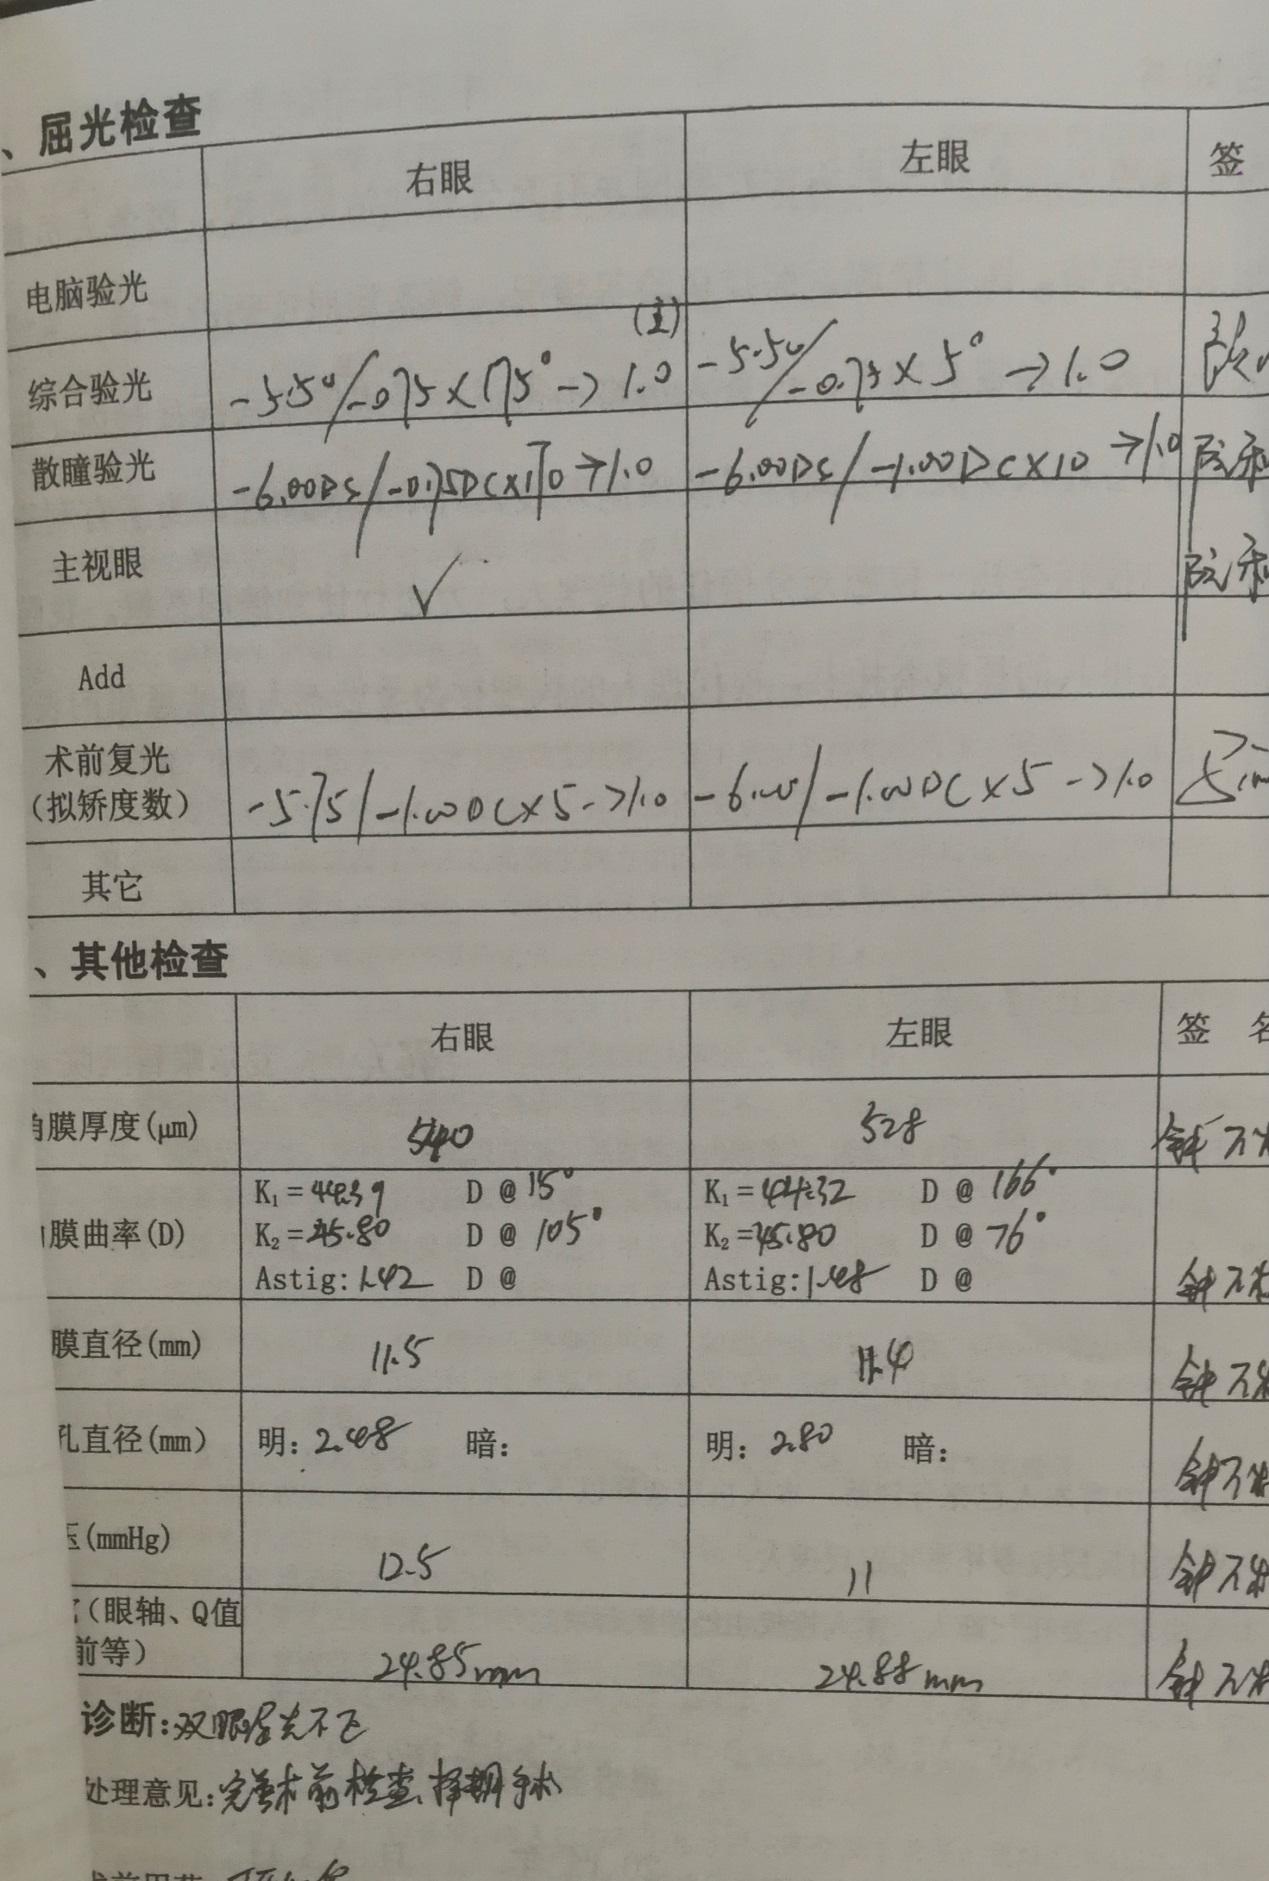 、屈光检查
右眼 左眼 签
电脑验光
综合验光 -5.50/-0.75×175°→1.0 (主) -5.50/-0.75×5°→1.0
散瞳验光 -6.00DS/-0.75DC×170→1.0 -6.00DS/-1.00DC×10→1.0
主视眼 ✓
Add
术前复光
(拟矫度数) -5.75/-1.00DC×5->1.0 -6.00/-1.00DC×5->1.0
其它
、其他检查
右眼 左眼 签 名
角膜厚度(μm) 540 528
K₁=44.39 D @ 15° K₁=44.32 D @ 166°
膜曲率(D) K₂=45.80 D @ 105° K₂=45.80 D @ 76°
Astig:1.42 D @ Astig:1.48 D @
膜直径(mm) 11.5 11.4
孔直径(mm) 明:2.48 暗: 明:2.80 暗:
压(mmHg) 12.5 11
(眼轴、Q值
前等) 24.85mm 24.88mm
诊断:双眼屈光不正
处理意见:完善术前检查、择期手术